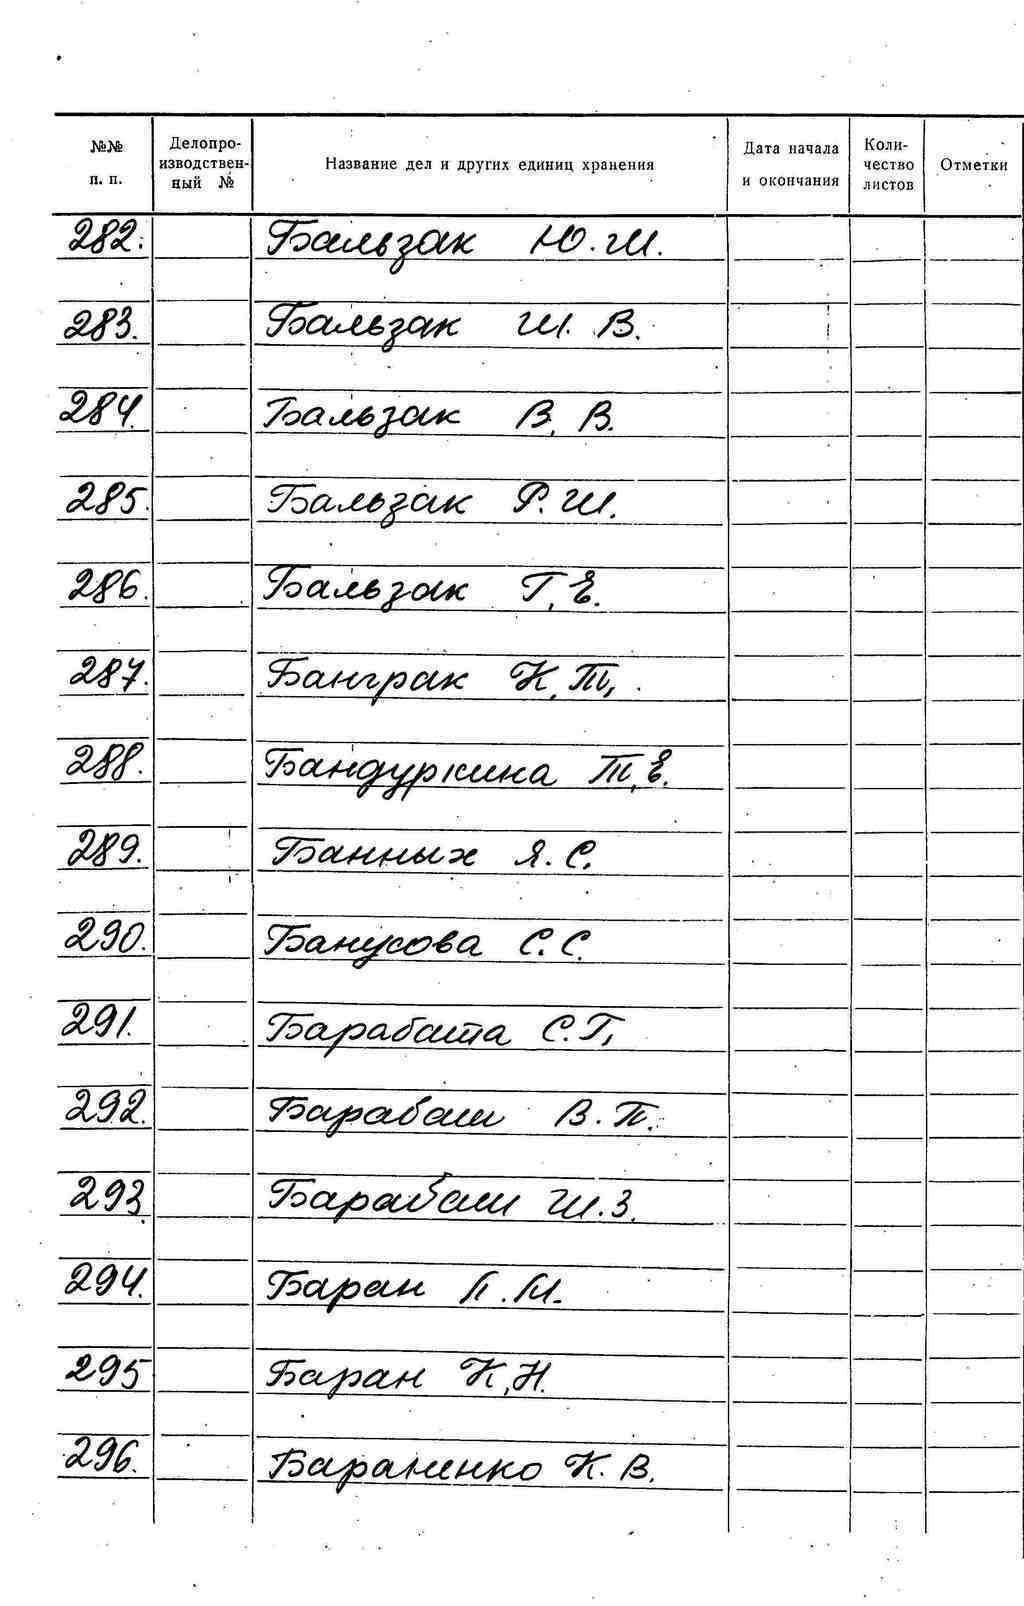 №№ п. п. Делопроизводственный № Название дел и других единиц хранения Дата начала и окончания Количество листов Отметки
282. Бальзак Ю. Ш.
283. Бальзак Ш. В.
284. Бальзак В. В.
285. Бальзак Р. Ш.
286. Бальзак Г. Е.
287. Банграк К. Т.
288. Бандуркина Т. Е.
289. Банных Я. С.
290. Банусова С. С.
291. Барабаша С. Г.
292. Барабаш В. П.
293. Барабаш Ш. З.
294. Баран П. М.
295 Баран К. Н.
296. Бараненко К. В.